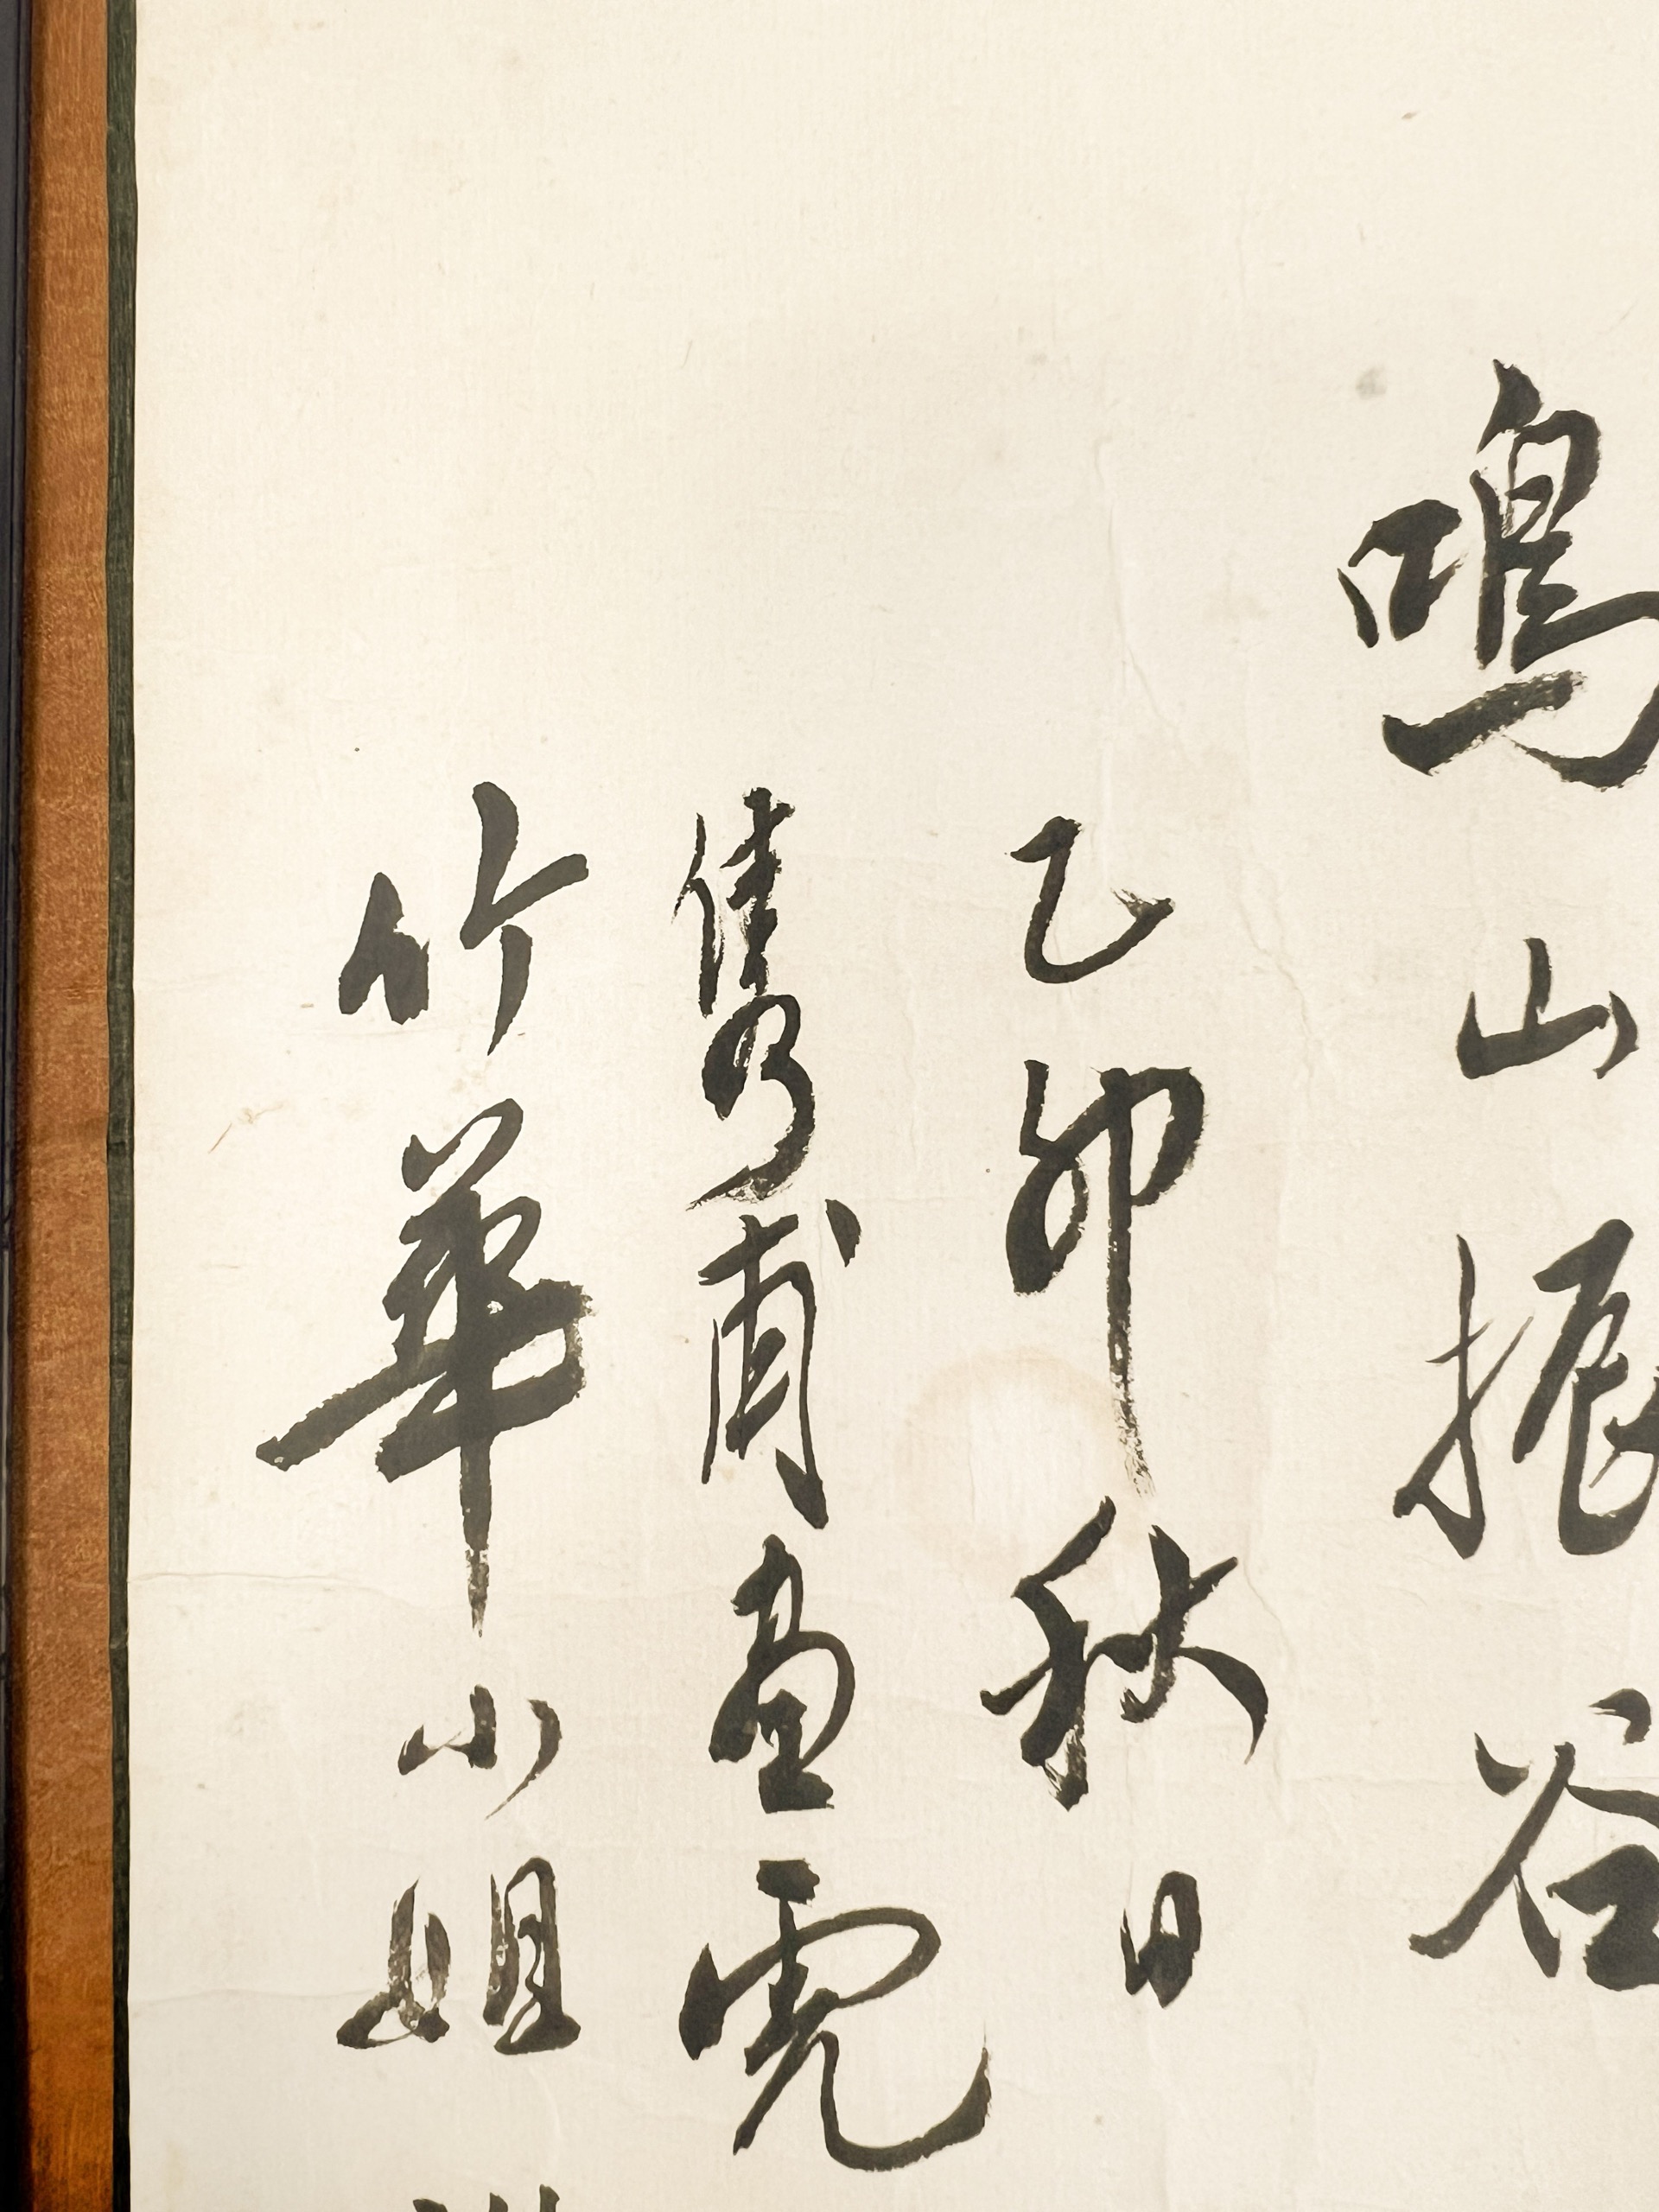 鳴山振谷
乙卯秋日
雋甫畫虎
竹華小姐